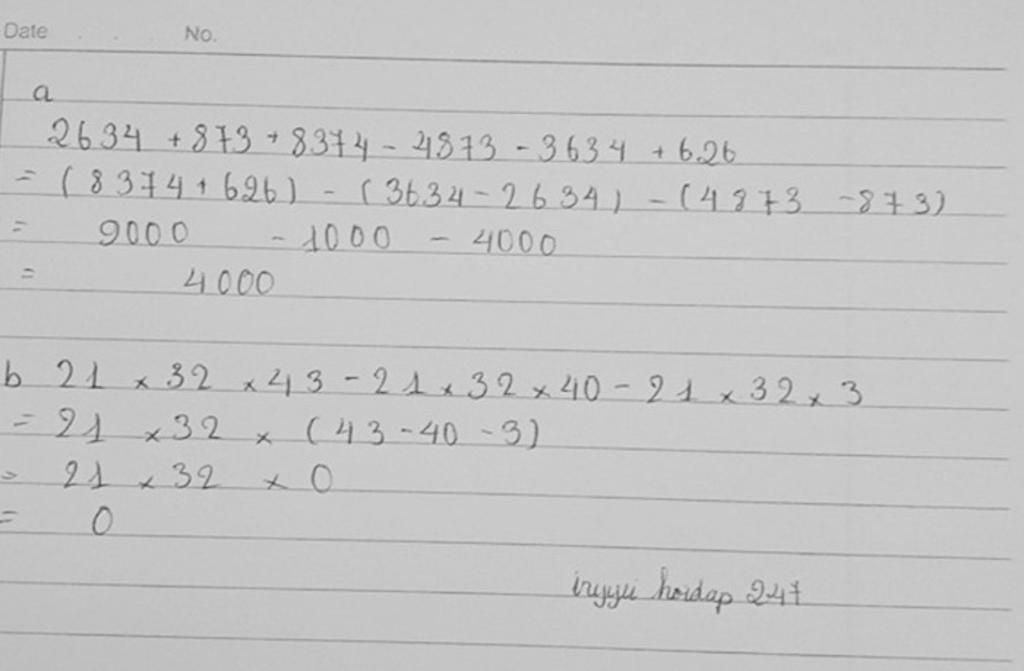 Date . . . No.
a
2634 + 873 + 8374 - 4873 - 3634 + 626
= (8374 + 626) - (3634 - 2634) - (4873 - 873)
= 9000 - 1000 - 4000
= 4000
b 21 × 32 × 43 - 21 × 32 × 40 - 21 × 32 × 3
= 21 × 32 × (43 - 40 - 3)
= 21 × 32 × 0
= 0
hoidap 247